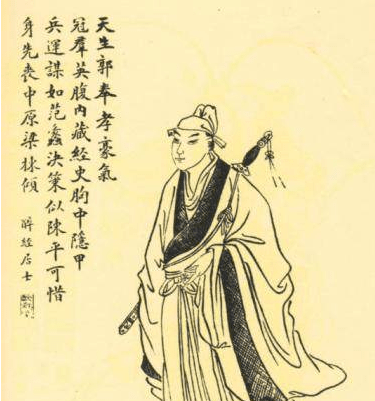 天生郭奉孝豪氣
冠羣英腹內藏經史胸中隱甲
兵運謀如范蠡決策似陳平可惜
身先喪中原梁棟傾
經居士